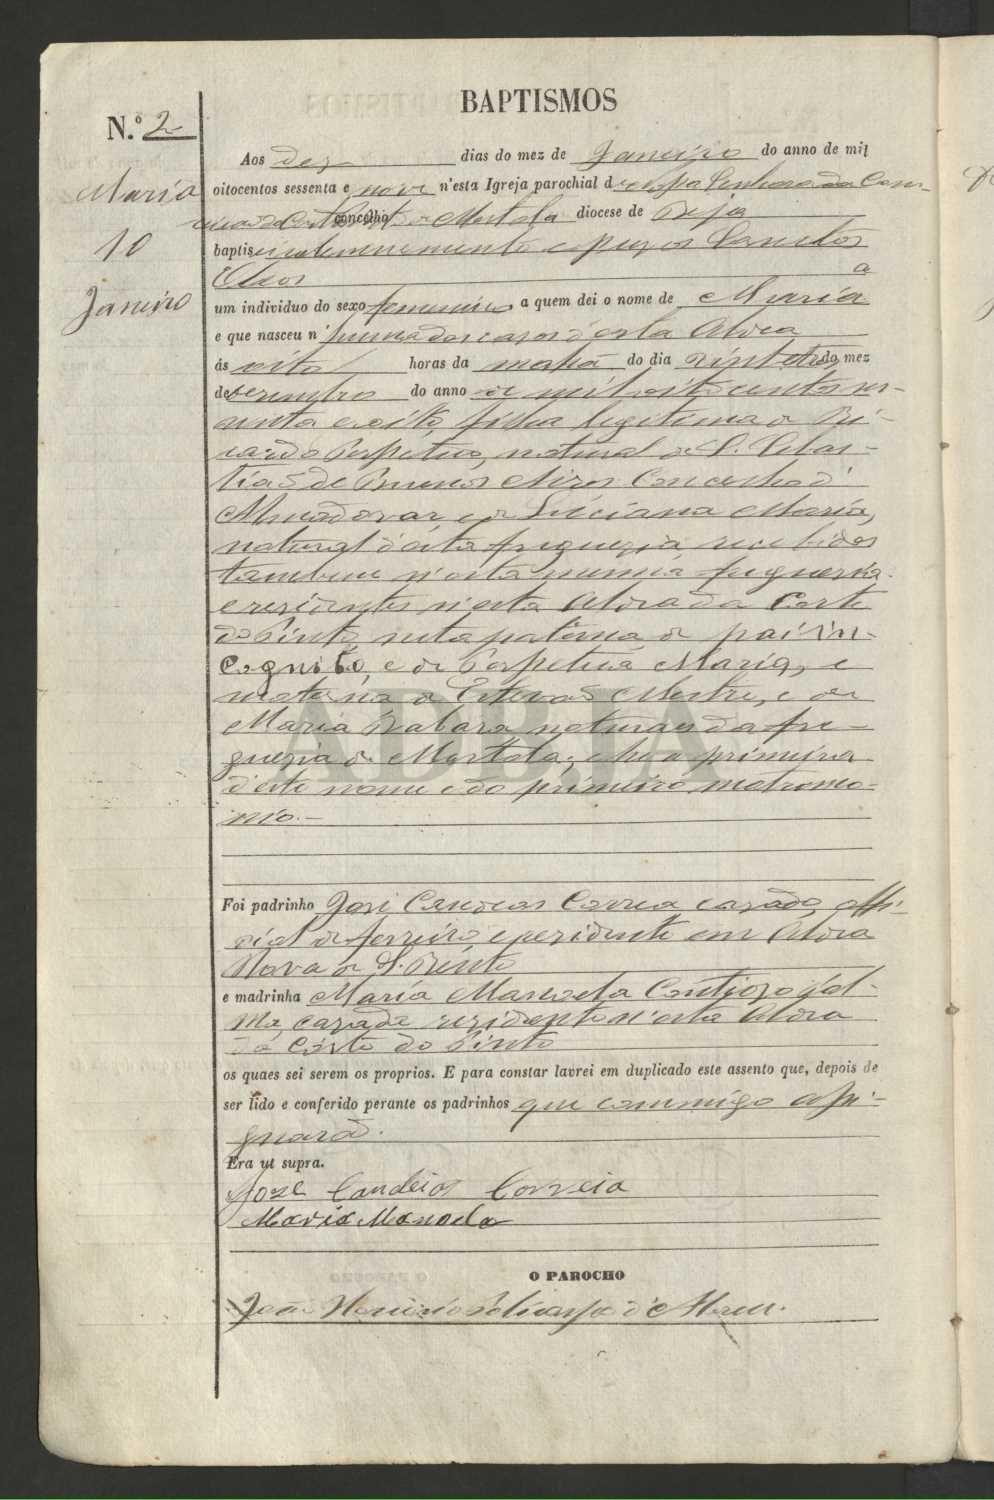 BAPTISMOS
N.º 2
Maria
10
Janeiro
Aos dez dias do mez de Janeiro do anno de mil
oitocentos sessenta e nove n'esta Igreja parochial de Nossa Senhora da Con-
concelho de Mertola diocese de Beja
baptisei solemnemente e puz os Sanctos
Oleos a
um individuo do sexo femenino a quem dei o nome de Maria
e que nasceu n'huma das casas d'esta Aldea
ás oito horas da mahã do dia vinte do mez
de Dezembro do anno de mil oitocentos se-
ssenta e oito, filha legitima de Ri-
cardo Perpetuo, natural de S. Sebas-
tião de Gomes Aires Concelho d'
Almodovar e de Luciana Maria,
natural d'esta freguezia, recebidos
tambem n'esta mesma freguezia
e residentes n'esta Aldea da Corte
do Pinto, neta paterna de pai in-
cognito, e de Perpetua Maria, e
materna de Estevão Mestre, e de
Maria Barbara naturaes da fre-
guezia de Mertola; he a primeira
d'este nome e do primeiro matrimo-
nio.-
Foi padrinho José Candeias Correa casado, offi-
cial de ferreiro, e residente em Aldea
Nova de S. Bento
e madrinha Maria Manoela
casada residente n'esta Aldea
da Corte do Pinto
os quaes sei serem os proprios. E para constar lavrei em duplicado este assento que, depois de
ser lido e conferido perante os padrinhos que commigo assi-
gnarão.
Era ut supra.
José Candeias Correia
Maria Manoela
O PAROCHO
João d'Abreu.
ADBJA